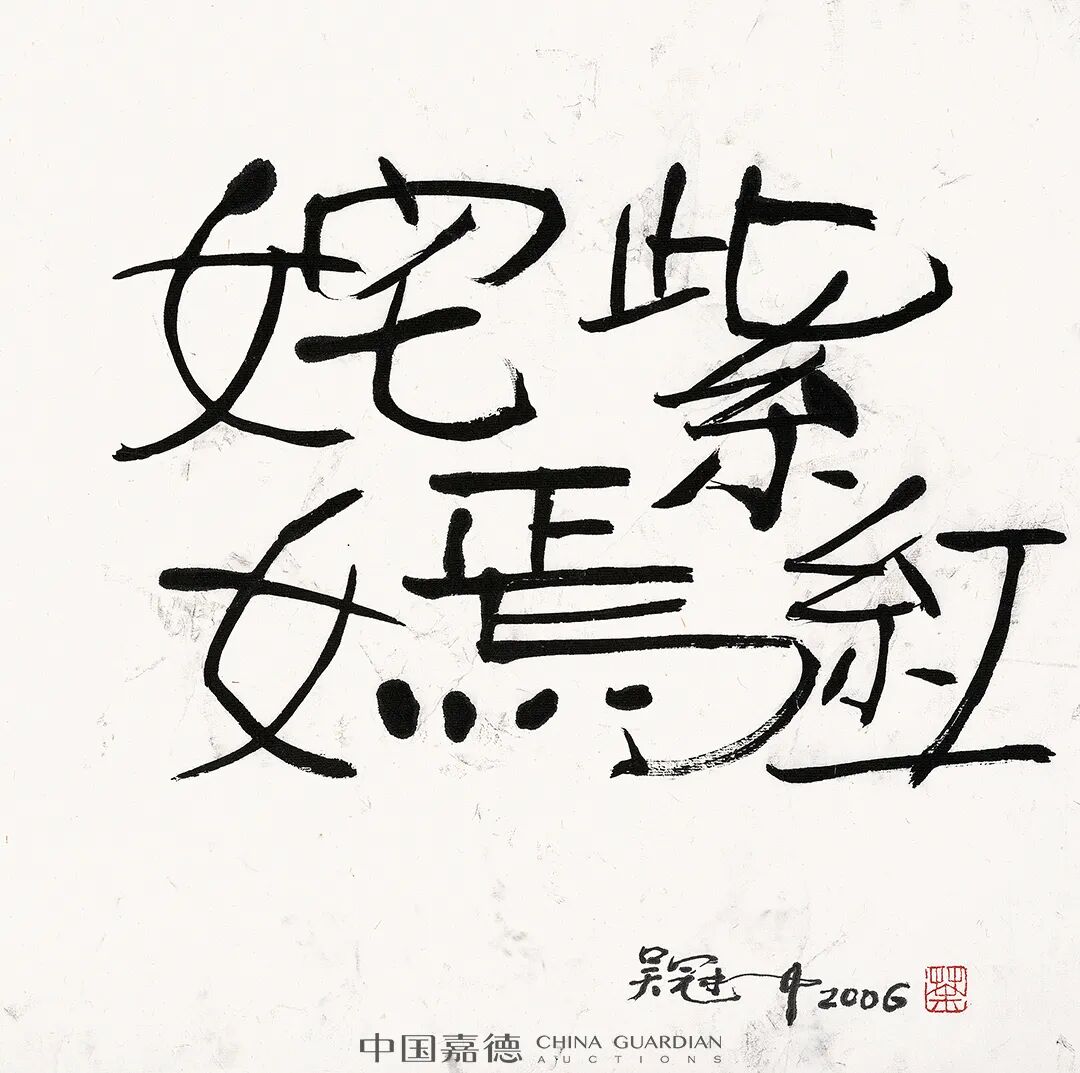 姹紫
嫣紅
吴冠中 2006
荼
中国嘉德 CHINA GUARDIAN
AUCTIONS